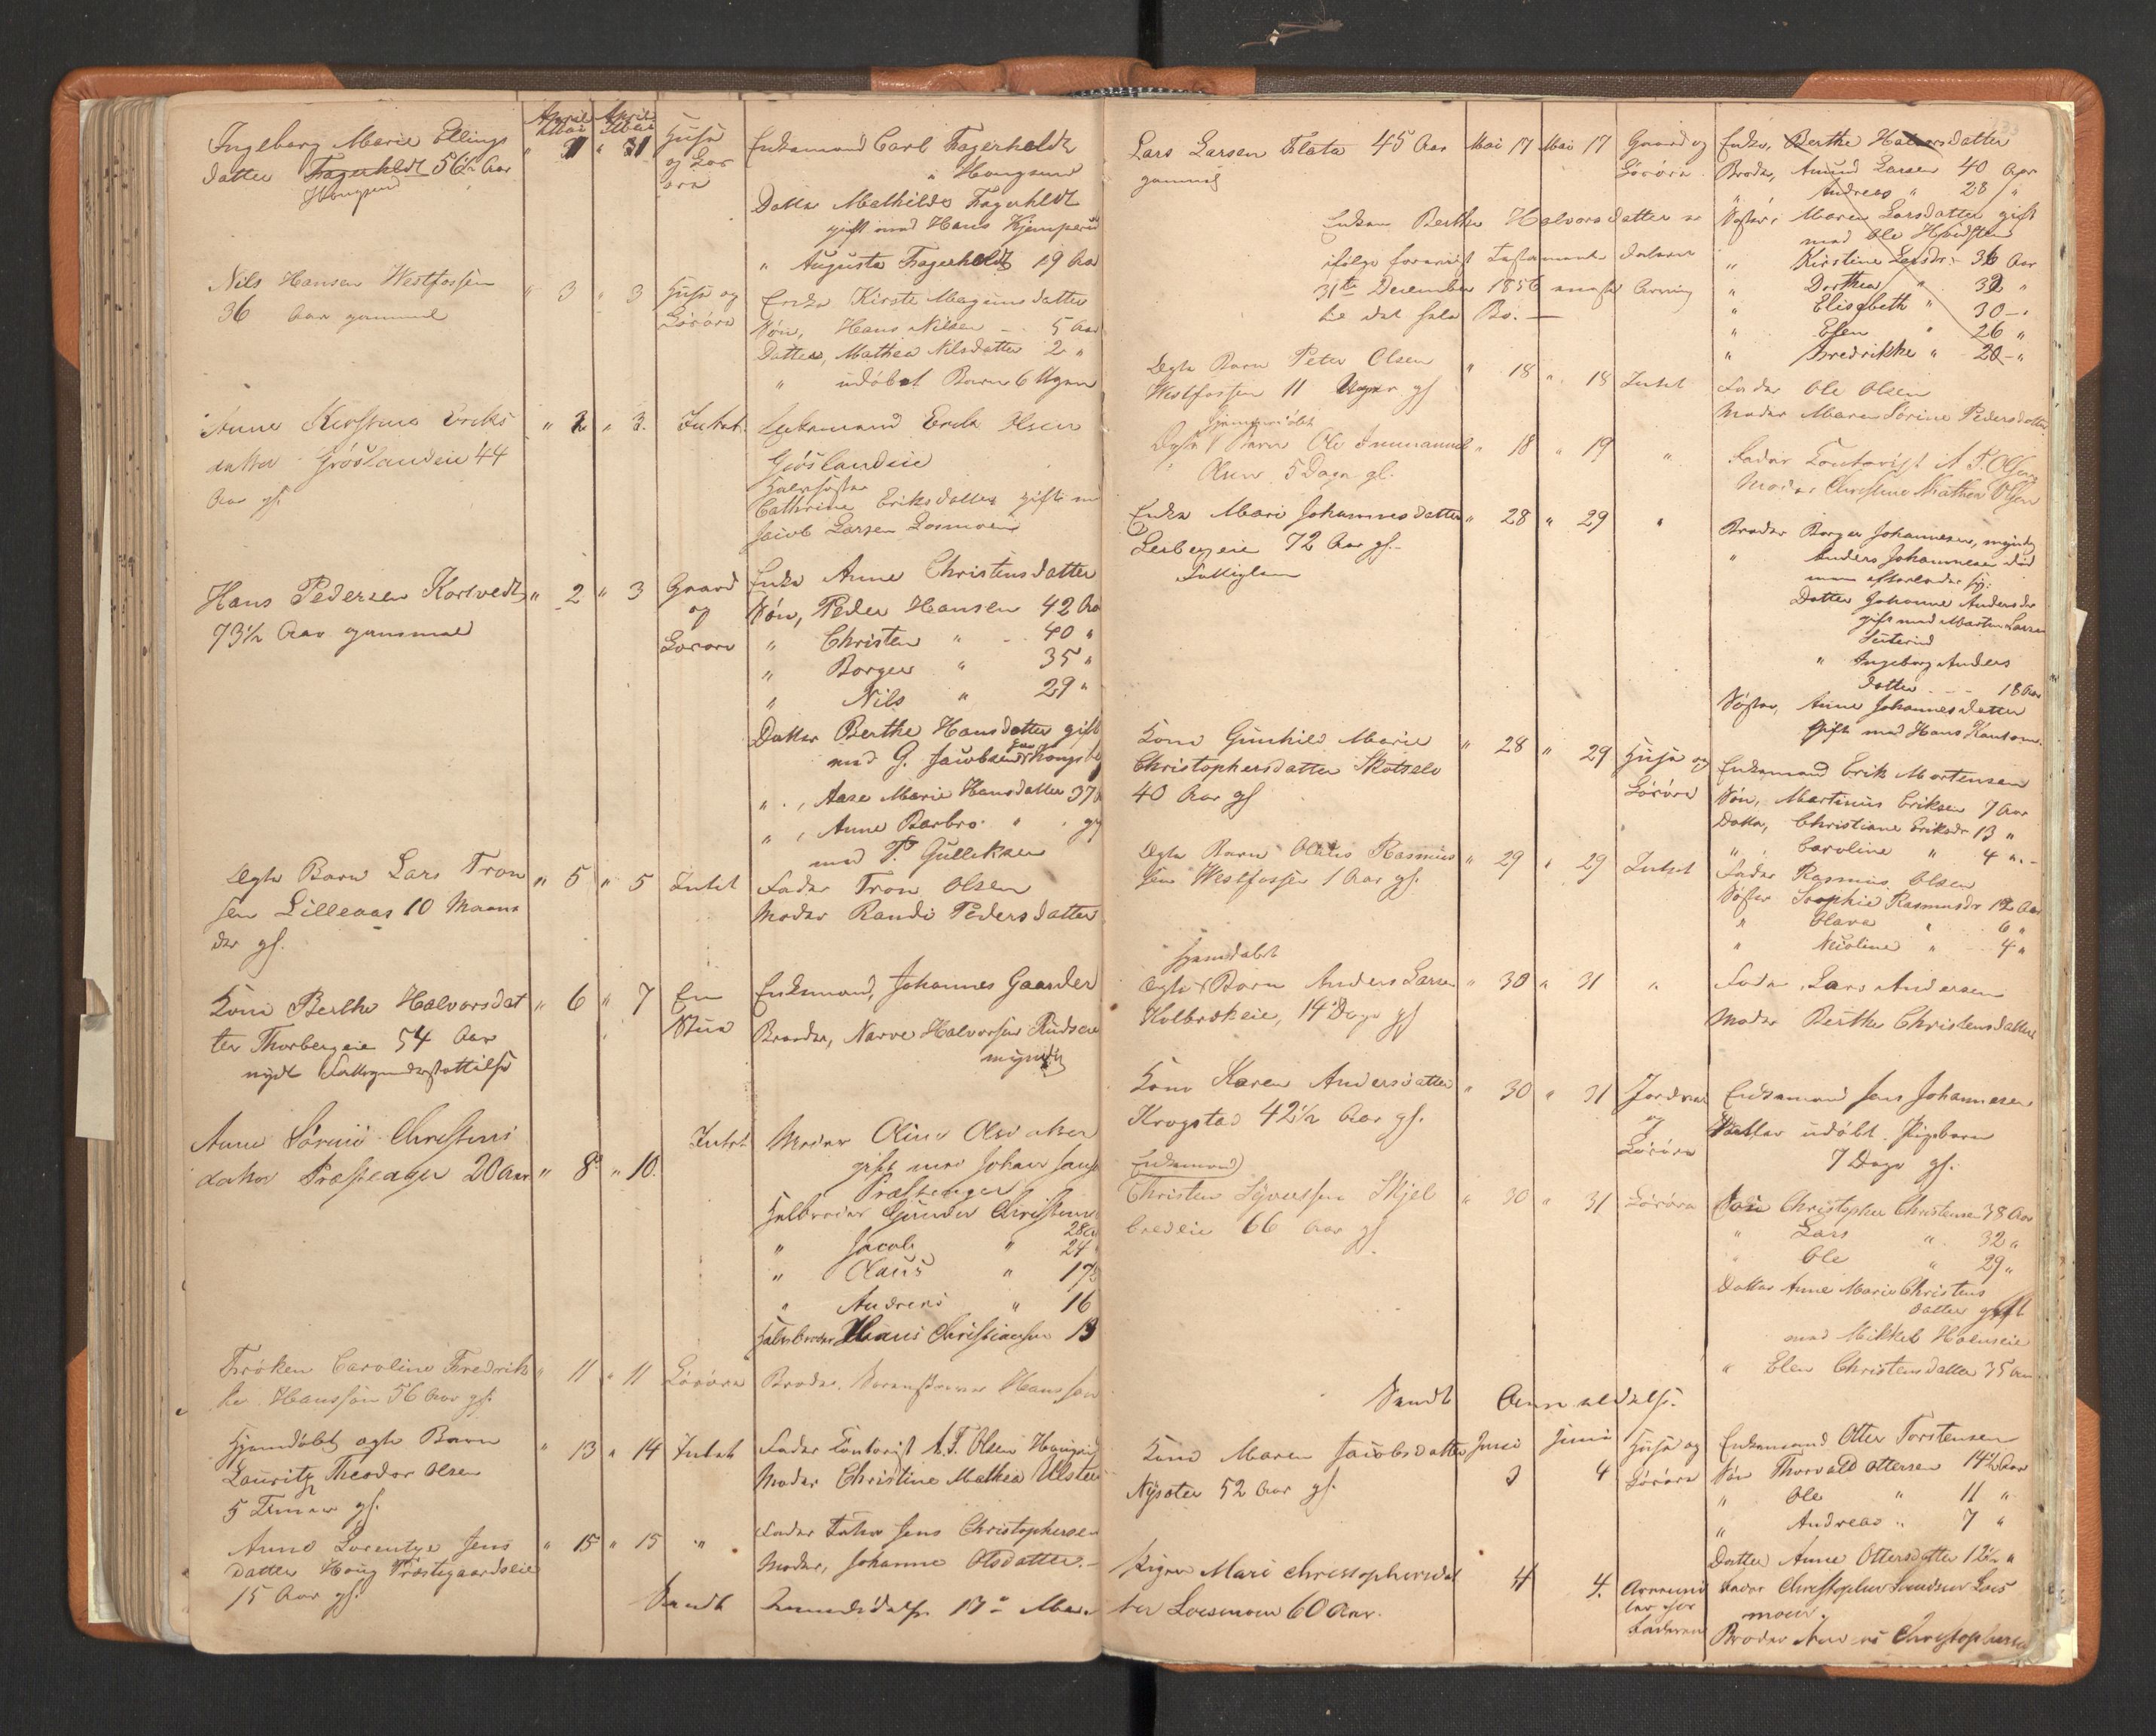 Ingeborg Marie Ellings
datter Fagerholdt 56½ Aar
Hougsund
April April
Mai Mai
" 31 " 31
Huse
og Løs
øre
Enkemand Carl Fagerholdt
Hougsund
Datter Mathilde Fagerholdt
gift med Hans Kjemperud
" Augusta Fagerholdt 19 Aar
Nils Hansen Westfossen
36 Aar gammel
" 3 " 3
Huse og
Løsøre
Enke Kirsti Magnusdatter
Søn, Hans Nilsen 5 Aar
Datter, Mathea Nilsdatter 2 "
" udøbt Barn 6 Uger
Anne Kirstine Eriks
datter 44
Aar gl.
" 2 " 3.
Intet
Enkemand Erik Olsen
Halvsøster
Cathrine Eriksdatter gift med
Jacob Larsen Loesmoen
Hans Pedersen Kortvedt
73½ Aar gammel
" 2 " 3
Gaard
og
Løsøre
Enke Anne Christensdatter
Søn, Peder Hansen 42 Aar
" Christen " 40 "
" Borger " 35 "
" Nils " 29 "
Datter Berthe Hansdatter gift
med G. Jacobsen Kongsb
" , Aase Marie Hansdatter 37
" , Anne Barbro " gift
med P. Gulliksen
Ægte Barn Lars Tron
sen Lilleaas 10 Maane
der gl.
" 5 " 5
Intet
Fader Tron Olsen
Moder Randi Pedersdatter
Kone Berthe Halvorsdat
ter Thorbergeie 54 Aar
nydt Fattigunderstøttelse
" 6 " 7
En
Stue
Enkemand, Johannes Gaarder
Broder, Narve Halvorsen Rudseie
myndig
Anne Sørine Christens
datter Præsteager 20 Aar
" 8 " 10.
Intet
Moder Oline Olsdatter
gift med Johan
Præsteager
Halbroder Gunder Christensen
28 Aar
" Jacob " 24
" Olaus " 17½
" Andreas " 16
Halvbroder Hans Christiansen 13
Frøken Caroline Fredrik
ke Hansson 56 Aar gl.
" 11 " 11
Løsøre
Broder, Hansson
Hjemdøbt ægte Barn
Lauritz Theodor Olsen
5 Timer gl.
" 13 " 14
Intet
Fader Contorist A. T. Olsen Hougsund
Moder Christine Mathea Ulsten
Anne Lorentze Jens
datter Houg Præstegaardseie
15 Aar gl.
" 15 " 15 "
Fader Jens Christophersen
Moder, Johanne Olsdatter.
Sendt Anmeldelse 17de Mai
Lars Larsen Flata 45 Aar
gammel
Mai 17 Mai 17
Gaard og
Løsøre
Enke, Berthe Halvorsdatter
Broder, Amund Larsen 40 Aar
" Andreas " 28 "
Søster, Maren Larsdatter gift
med Ole
" Kirstine Larsdr. 36 Aar
" Dorthea " 32 "
" Elisabeth " 30 "
" Elen " 26 "
" Fredrikke " 20 "
Enken Berthe Halvorsdatter er
ifølge foreviist Testamente dateret
31te December 1856 eneste Arving
til det hele Bo.
Ægte Barn Peter Olsen
Westfossen 11 Uger gl
" 18 " 18
Intet
Fader Ole Olsen
Moder Maren Sørine Pedersdatter
Hjemmedøbt
Ægte Barn Ole Immanuel
Olsen 5 Dage gl.
" 18 " 19 "
Fader Contorist A. T. Olsen
Moder Christine Mathea Olsen
Enke Mari Johannesdatter
Lerbergeie 72 Aar gl.
Fattiglem
" 28 " 29 "
Broder Borger Johannesen, myndig
" Anders Johannesen død
men efterlader sig:
Datter Johanne Andersdr
gift med Martin Larsen
" Ingeborg Anders
datter 18 Aar
Søster, Anne Johannesdatter
Gift med Hans
Kone Gunhild Marie
Christophersdatter Skotselv
40 Aar gl
" 28 " 29
Huse og
Løsøre
Enkemand Erik Mortensen
Søn, Martinus Eriksen 7 Aar
Datter, Christiane Eriksdr 13 "
" Caroline " 4 "
Ægte Barn Rasmus
sen Westfossen 1 Aar gl.
" 29 " 29
Intet
Fader Rasmus Olsen
Søster Sophie Rasmusdr 12 Aar
" Olava " 6 "
" Nicoline " 4 "
Hjemdøbt
Ægte Barn Anders Larsen
Kolbrekeie, 14 Dage gl
" 30 " 31 "
Fader, Lars Andersen
Moder Berthe Christensdatter
Kone Karen Andersdatter
Krogstad 42½ Aar gl.
" 30 " 31
Jordvei
og
Løsøre
Enkemand Jens Johannesen
udøbt Pigebarn
7 Dage gl.
Enkemand
Christen Syversen Skjel
bredeie 66 Aar gl
" 30 " 31
Løsøre
Søn Christopher Christensen 38 Aar
" Lars " 32 "
" Ole " 29 "
Datter Anne Marie Christens
datter gift
med Mikkel Holmseie
" Elen Christensdatter 35 Aar
Sendt Anmeldelse.
Kone Maren Jacobsdatter
Nysæter 52 Aar gl.
Juni Juni
3 4
Huse og
Løsøre
Enkemand Otter Torstensen
Søn Thorvald Ottersen 14½ Aar
" Ole " 11 "
" Andreas " 7 "
Datter Anne Ottersdatter 12½ "
Pigen Mari Christophersdat
ter Loesmoen 60 Aar.
4 4.
Faderen
Fader Christopher Loes
moen.
Broder Christophersen